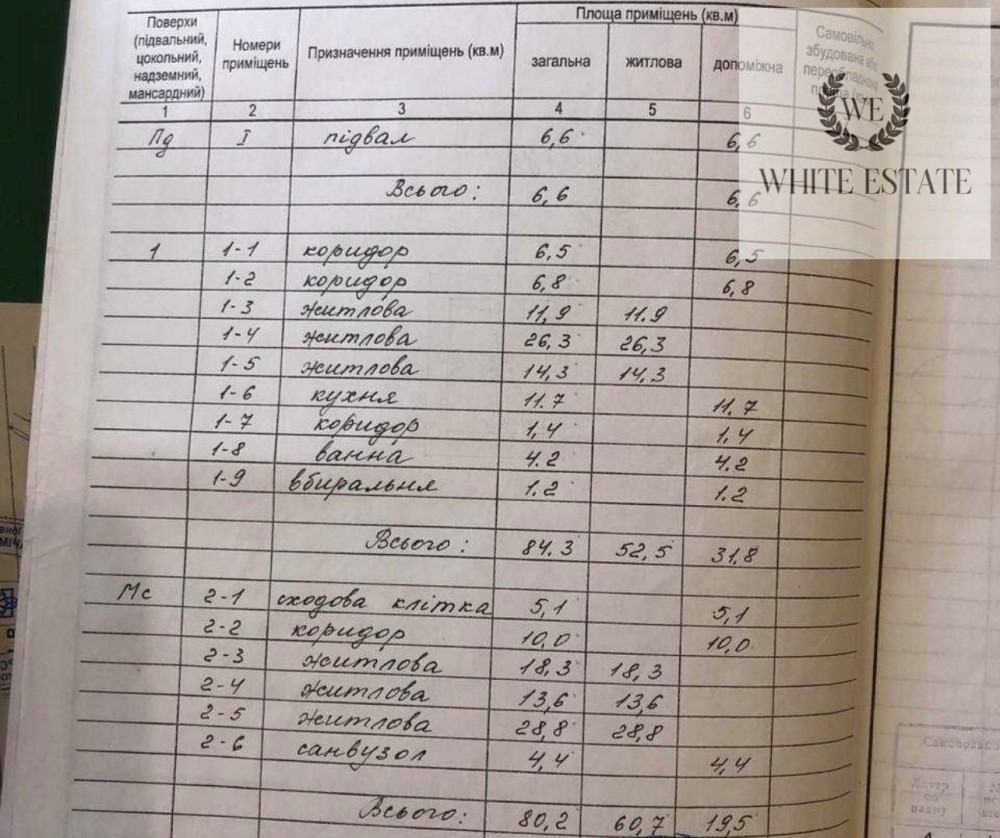 Поверхи (підвальний, цокольний, надземний, мансардний) Номери приміщень Призначення приміщень (кв.м) Площа приміщень (кв.м) Самовільно збудована або
загальна житлова допоміжна
1 2 3 4 5 6
Пд І підвал 6,6 6,6
Всього: 6,6 6,6
WE
WHITE ESTATE
1 1-1 коридор 6,5 6,5
1-2 коридор 6,8 6,8
1-3 житлова 11,9 11.9
1-4 житлова 26,3 26,3
1-5 житлова 14,3 14,3
1-6 кухня 11.7 11,7
1-7 коридор 1,4 1,4
1-8 ванна 4.2 4.2
1-9 вбиральня 1.2 1.2
Всього: 84.3 52,5 31,8
Мс 2-1 сходова клітка 5,1 5,1
2-2 коридор 10,0 10,0
2-3 житлова 18,3 18,3
2-4 житлова 13,6 13,6
2-5 житлова 28,8 28,8
2-6 санвузол 4,4 4,4
Всього: 80,2 60,7 19,5